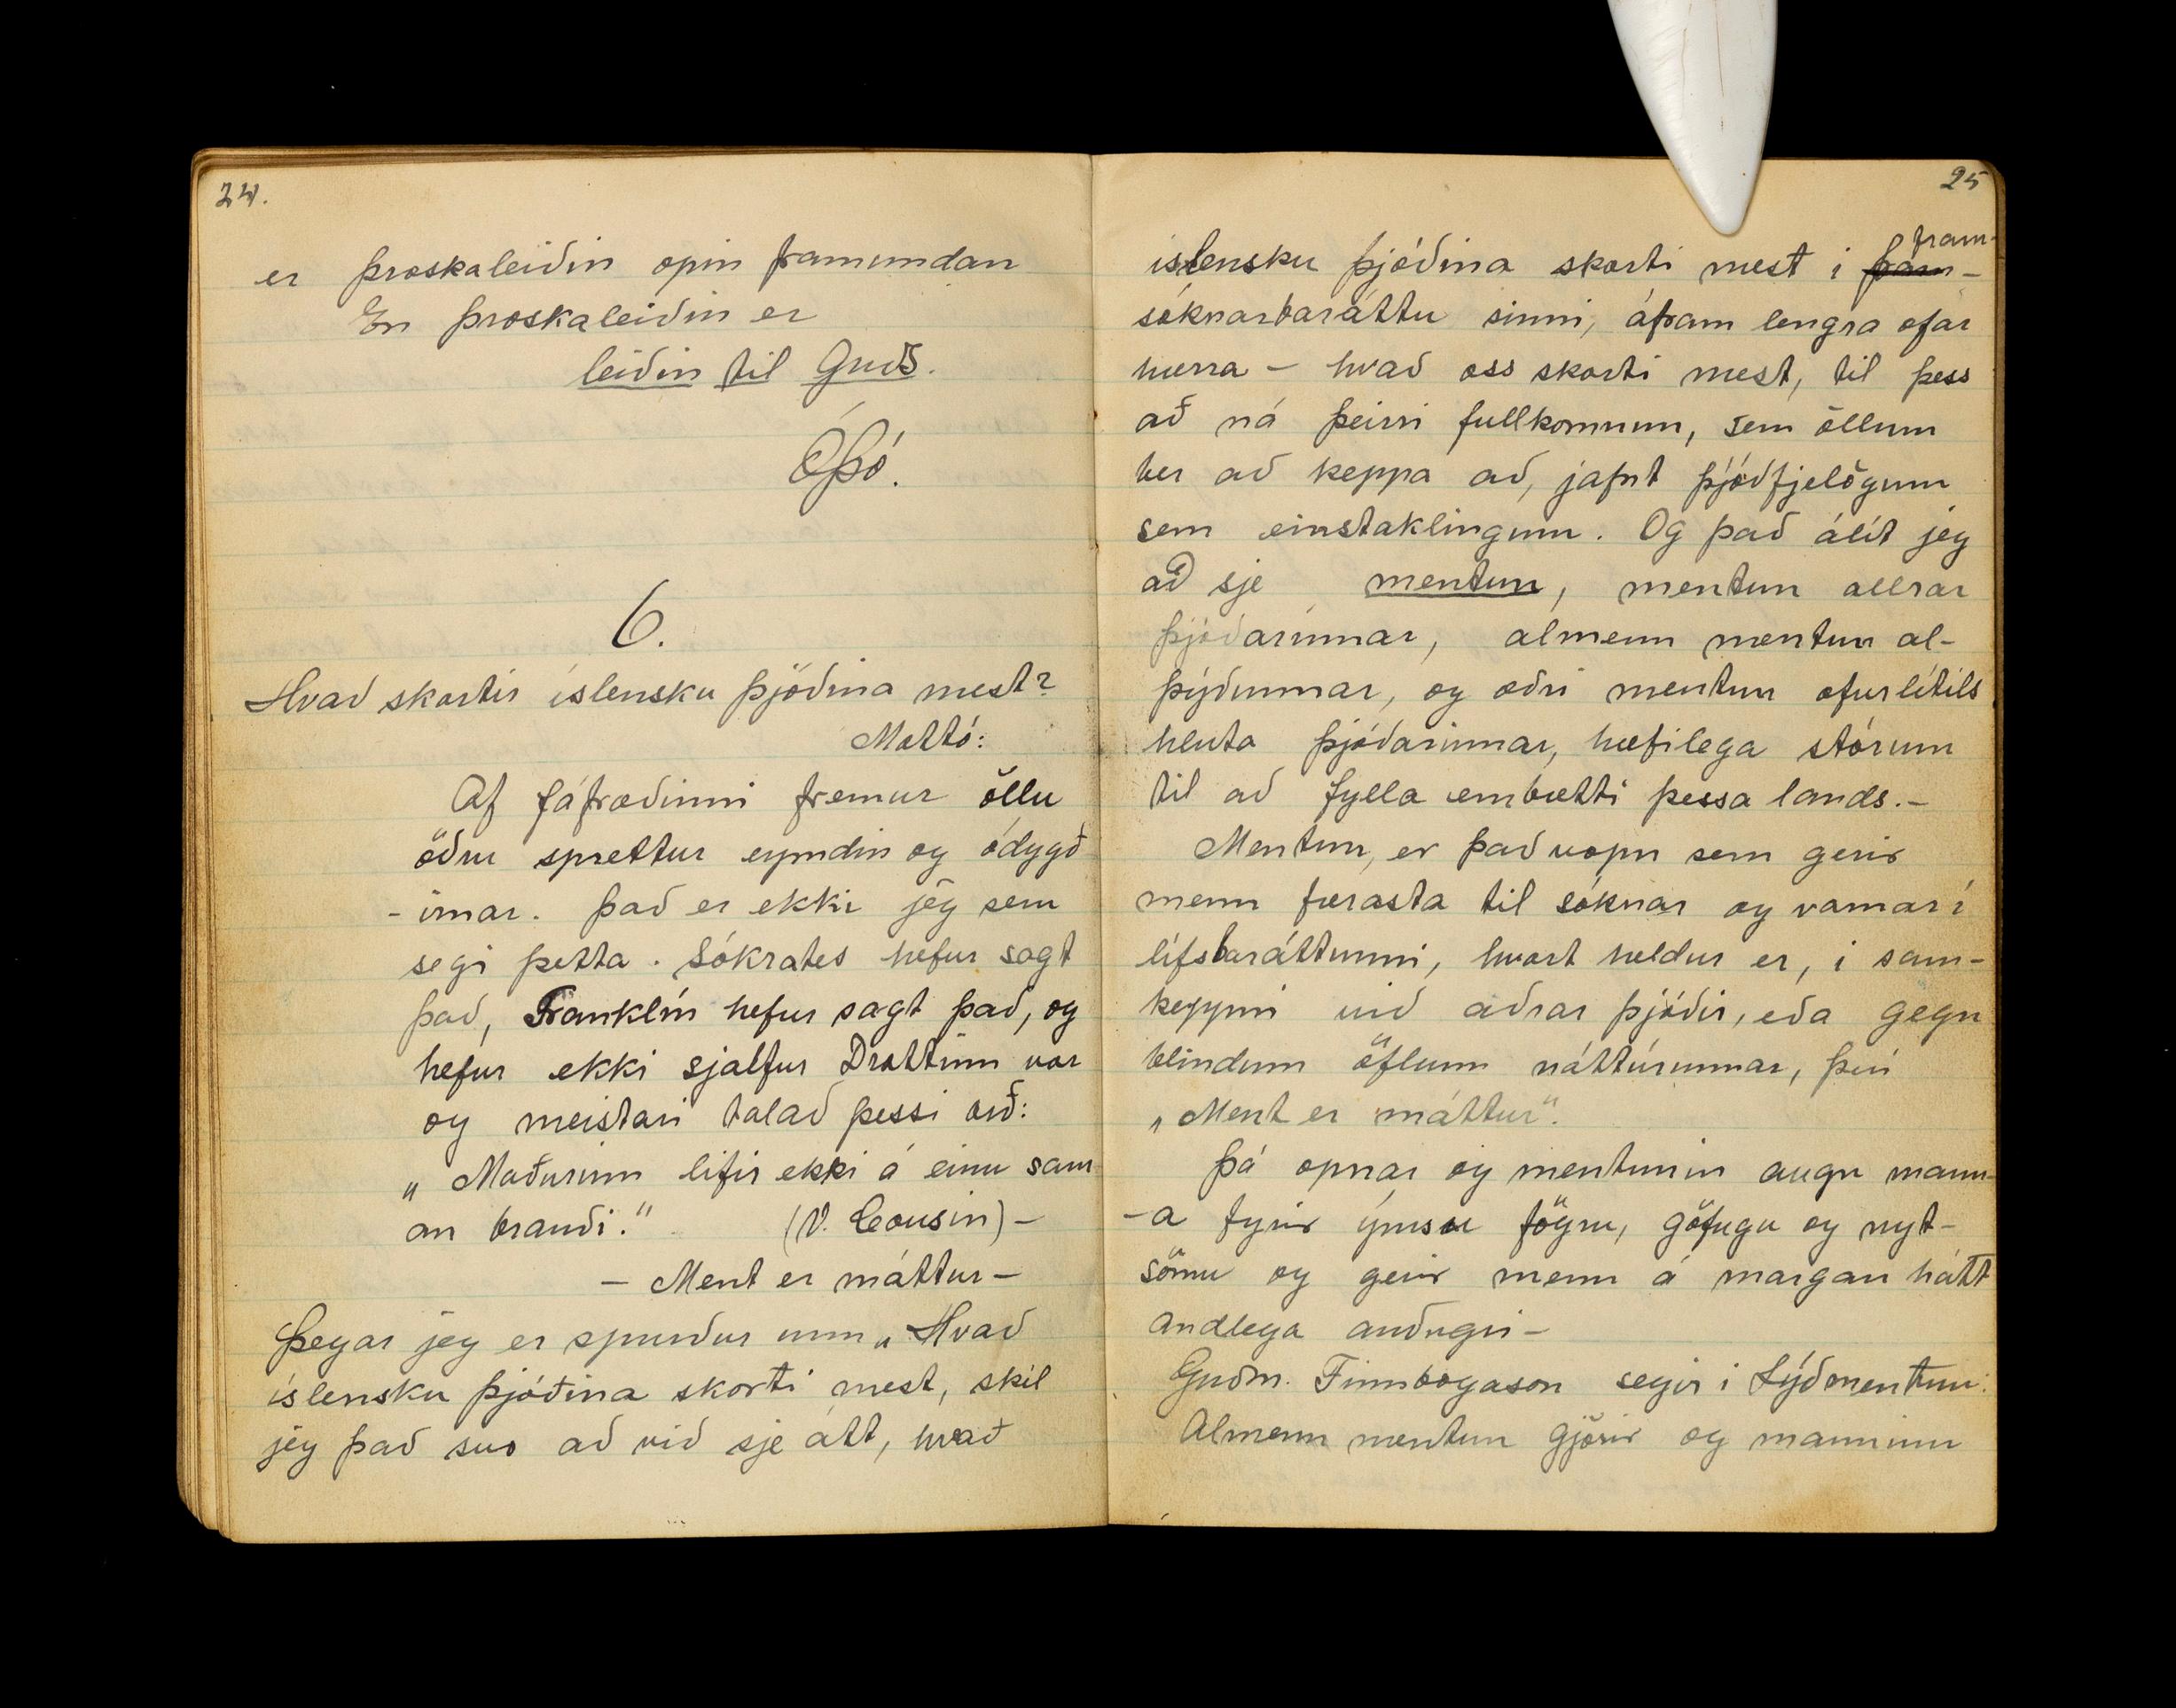 24.
er þroskaleiðin opin framundan
En þroskaleiðin er
leiðin til Guðs.
ÓÞÓ.
6.
Hvað skortir íslensku þjóðina mest?
Mottó:
Af fáfræðinni fremur öllu
öðru sprettur eymdin og ódygð
-irnar. Það er ekki jeg sem
segi þetta. Sókrates hefur sagt
það, Franklín hefur sagt það, og
hefur ekki sjalfur Drottinn vor
og meistari talað þessi orð:
„Maðurinn lifir ekki á einu sam
an brauði." (V. Cousin) -
- Ment er máttur -
Þegar jeg er spurður um „Hvað
íslensku þjóðina skorti mest, skil
jeg það svo að við sje átt, hvað
25
íslensku þjóðina skorti mest i þarn- fram-
sóknarbaráttu sinni, áfram lengra ofar
hærra - hvað oss skorti mest, til þess
að ná þeirri fullkomnun, sem öllum
ber að keppa að, jafnt þjóðfjelögum
sem einstaklingum. Og það álít jeg
að sje mentun, mentun allrar
þjóðarinnar, almenn mentun al-
þýðunnar, og æðri mentun ofurlítils
hluta þjóðarinnar, hæfilega stórum
til að fylla embætti þessa lands.-
Mentun, er það vopn sem gerir
menn færasta til sóknar og varnar í
lífsbaráttunni, hvort heldur er, i sam-
keppni við aðrar þjóðir, eða gegn
blindum öflum náttúrunnar, því
„Ment er máttur".
Þá opnar og mentunin augu mann-
-a fyrir ýmsu fögru, göfugu og nyt-
sömu og gerir menn á margan hátt
andlega auðugri -
Guðm. Finnbogason segir i Lýðmentun:
Almenn mentun gjörir og manninn